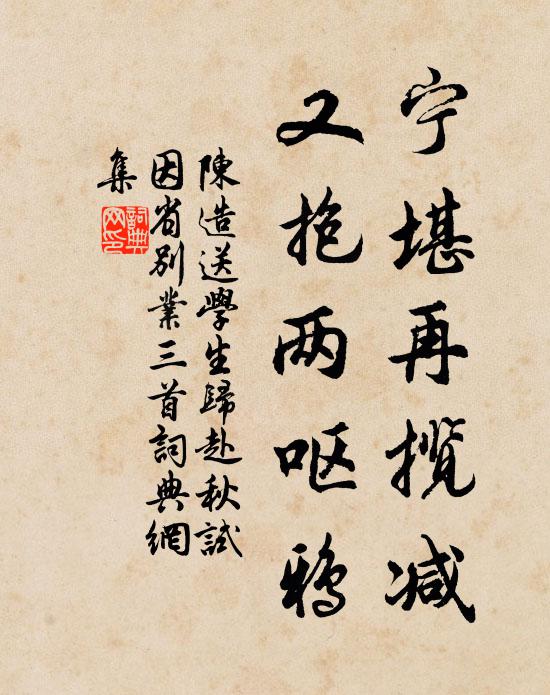 宁堪再揽减
又抱两呕鸦
陳造送學生歸赴秋試
因省别業三首詞典網
集
詞典
网印